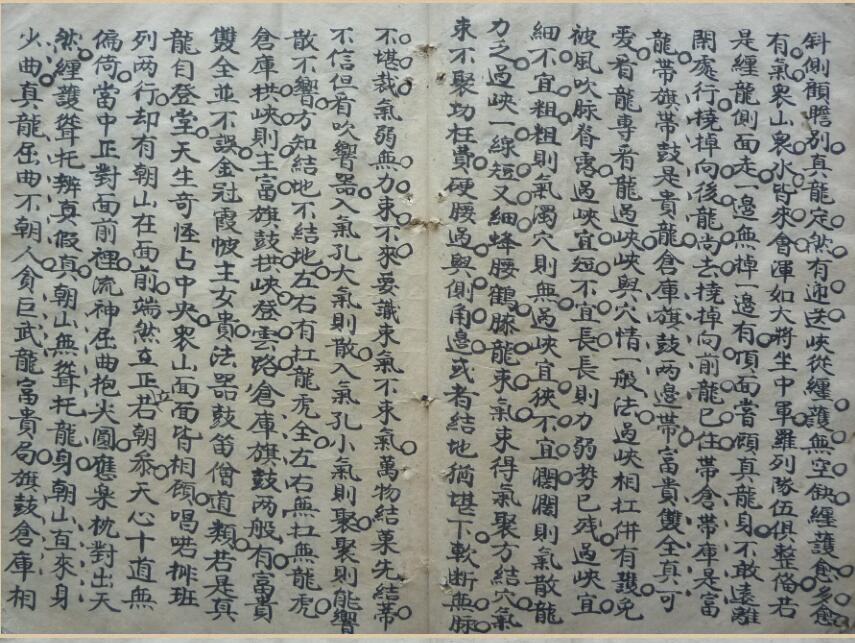 斜側顧瞻別真龍定然有迎送峽從纏護無空缺纏護愈多愈
有氣衆山衆水皆來會渾如大將坐中軍羅列隊伍俱整俻若
是纏龍側面走一邊無棹一邊有頂面當顧真龍身不敢遠離
閑處行橈棹向後龍尚去橈棹向前龍已住帶倉帶庫是富
龍帶旗帶鼓是貴龍倉庫旗鼓兩邊帶富貴雙全真可
愛看龍專看龍過峽峽與穴情一般法過峽相扛併有護免
被風吹脉脊露過峽宜短不宜長長則力弱勢已殘過峽宜
細不宜粗粗則氣濁穴則無過峽宜狹不宜濶濶則氣散龍
力乏過峽一線短又細蜂腰鶴膝龍束氣束得氣聚方結穴氣
束不聚功枉費硬腰過與側角邉或者結地猶堪下軟断無脉
不堪裁氣弱無力束不來要識束氣不束氣萬物結菓先結蒂
不信但看吹響器入氣孔大氣則散入氣孔小氣則聚聚則能響
散不響方知結地不結地左右有扛龍虎全左右無扛無龍虎
倉庫拱峽則主富旗鼓拱峽登雲路倉庫旗鼓兩般有富貴
雙全並不誤金冠霞帔主女貴法器鼓笛僧道類若是真
龍自登堂天生奇怪占中央衆山面面皆相顧唱喏排班
列两行却有朝山在面前端然立正若朝叅天心十道無
偏倚當中正對面前裡流神屈曲抱尖圓應案枕對出天
然纏護聳托辨真假真朝山無聳托龍身朝山直來身
少曲真龍屈曲不朝人貪巨武龍富貴局旗鼓倉庫相
立